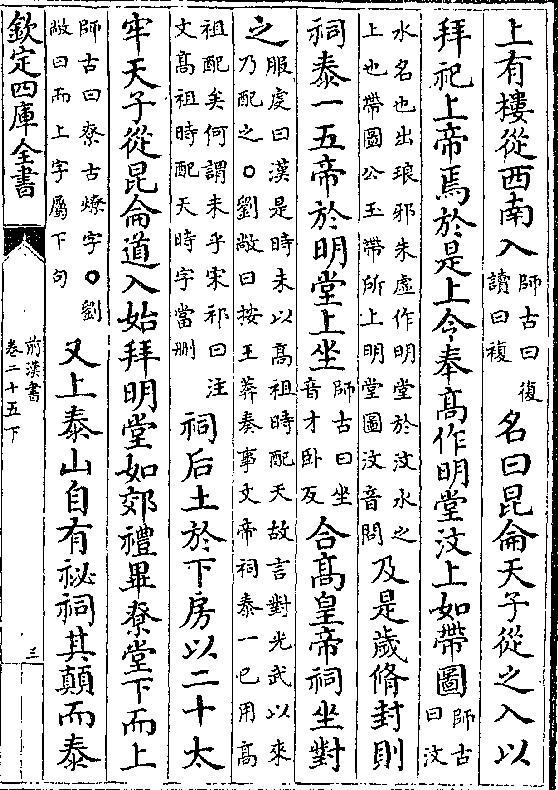 上有樓從西南入師古曰復讀曰複名曰昆侖天子從之入以
拜祀上帝焉於是上令奉髙作明堂汶上如帶圖師古曰汶
水名也出琅邪朱虛作明堂於汶水之上也帶圖公玉帶所上明堂圖汶音問及是歲脩封則
祠泰一五帝於明堂上坐師古曰坐音才卧反合髙皇帝祠坐對
之服虔曰漢是時未以髙祖時配天故言對光武以來乃配之○劉敞曰按王莽奏事文帝祠泰一已用髙
祖配矣何謂未乎宋祁曰注文髙祖時配天時字當刪祠后土於下房以二十太
牢天子從昆侖道入始拜明堂如郊禮畢尞堂下而上
師古曰尞古燎字○劉敞曰而上字屬下句又上泰山自有祕祠其顛而泰
欽定四庫全書
前漢書
卷二十五下
三